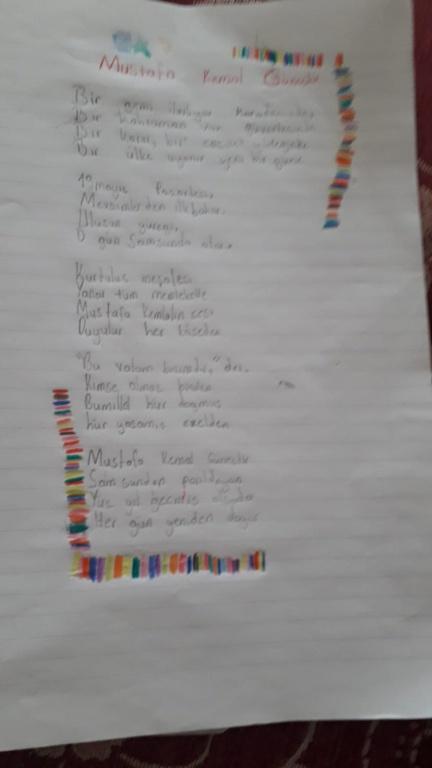 Mustafa Kemal Güneştir
Bir gemi ilerliyor Karadeniz'de
Bir kahraman var güvertesinde
Bir karar, bir
Bir ülke uyanır yeni bir güne
19 mayıs Pazartesi,
Mevsimlerden ilkbahar,
Ulusun güneşi,
O gün Samsunda doğar
Kurtuluş meşalesi
Yanar tüm memlekette
Mustafa Kemalin sesi
Duyulur her köşeden
"Bu vatan bizimdir," der.
Kimse almaz bizden
Bumillet hür doğmuş
hür yaşamış ezelden
Mustafa Kemal Güneştir
Samsundan parıldayan
Yüz yıl geçse
Her gün yeniden doğar